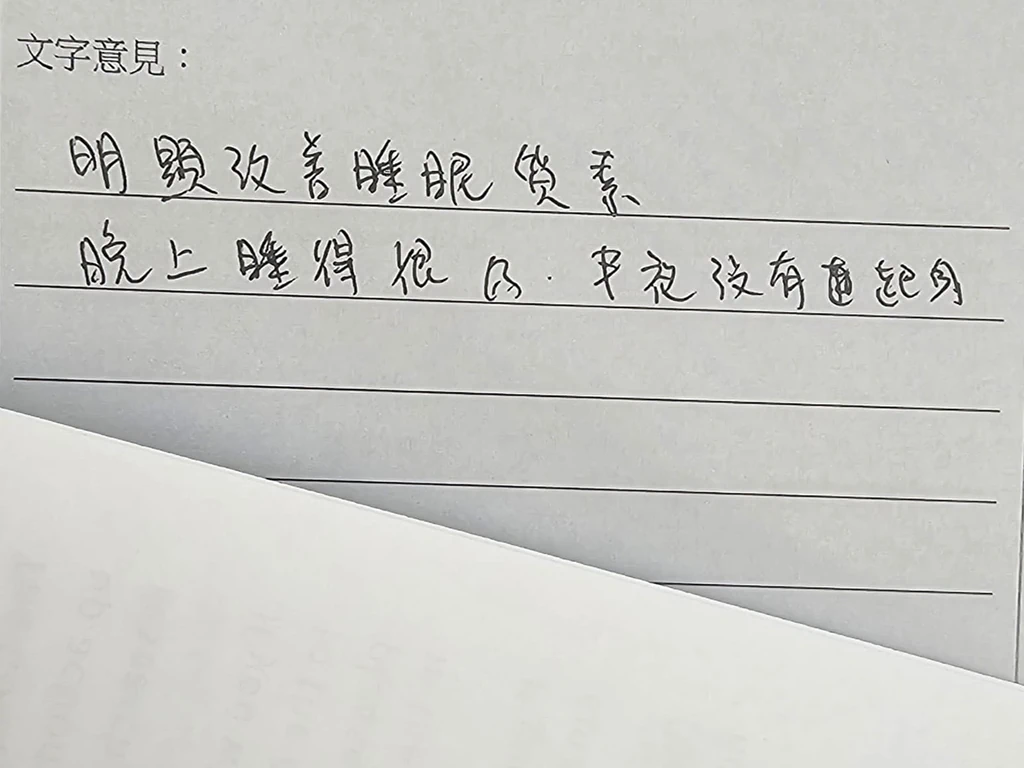 文字意見：
明顯改善睡眠質素
晚上睡得很好．半夜沒有起身